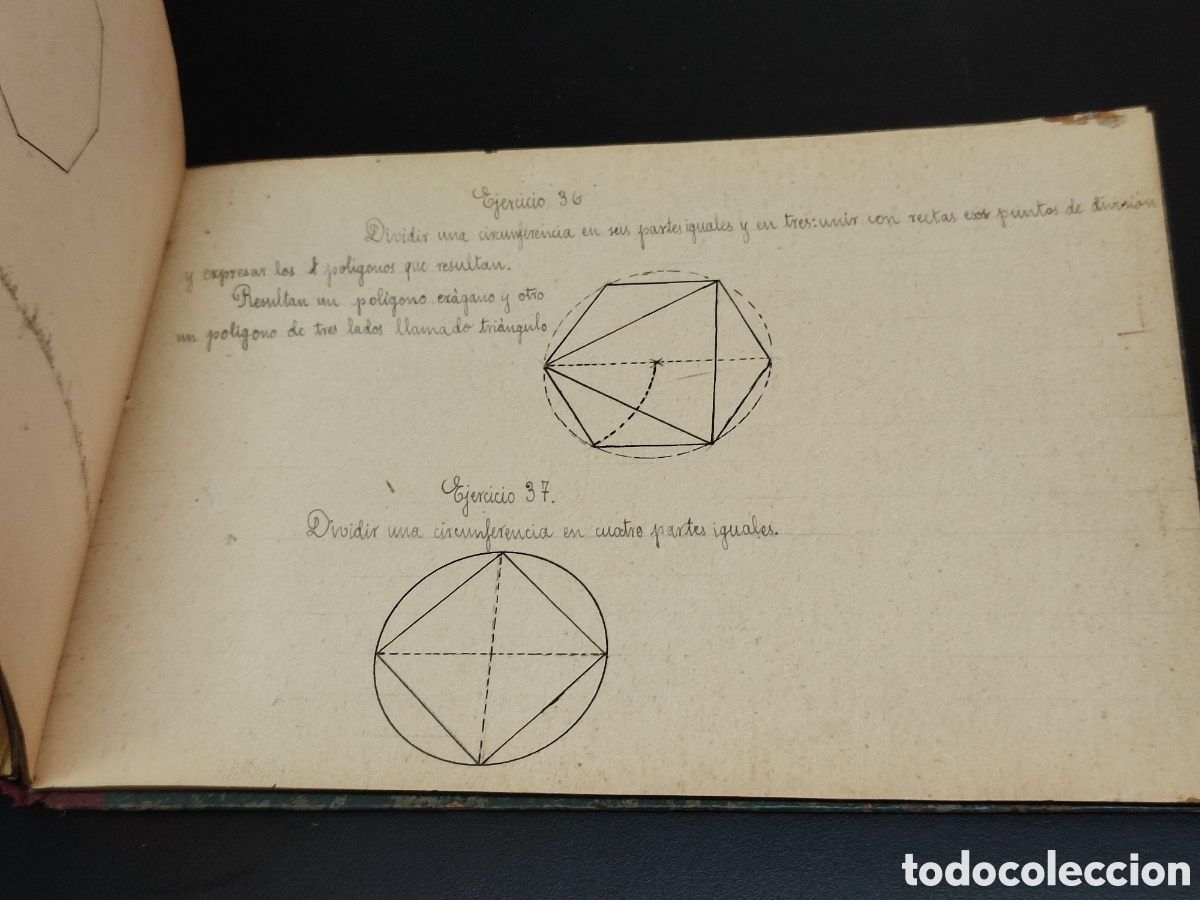 Ejercicio 36
Dividir una circunferencia en seis partes iguales y en tres: unir con rectas esos puntos de división
y expresar los polígonos que resultan.
Resultan un polígono exágano y otro
un polígono de tres lados llamado triángulo
Ejercicio 37.
Dividir una circunferencia en cuatro partes iguales.
todocoleccion